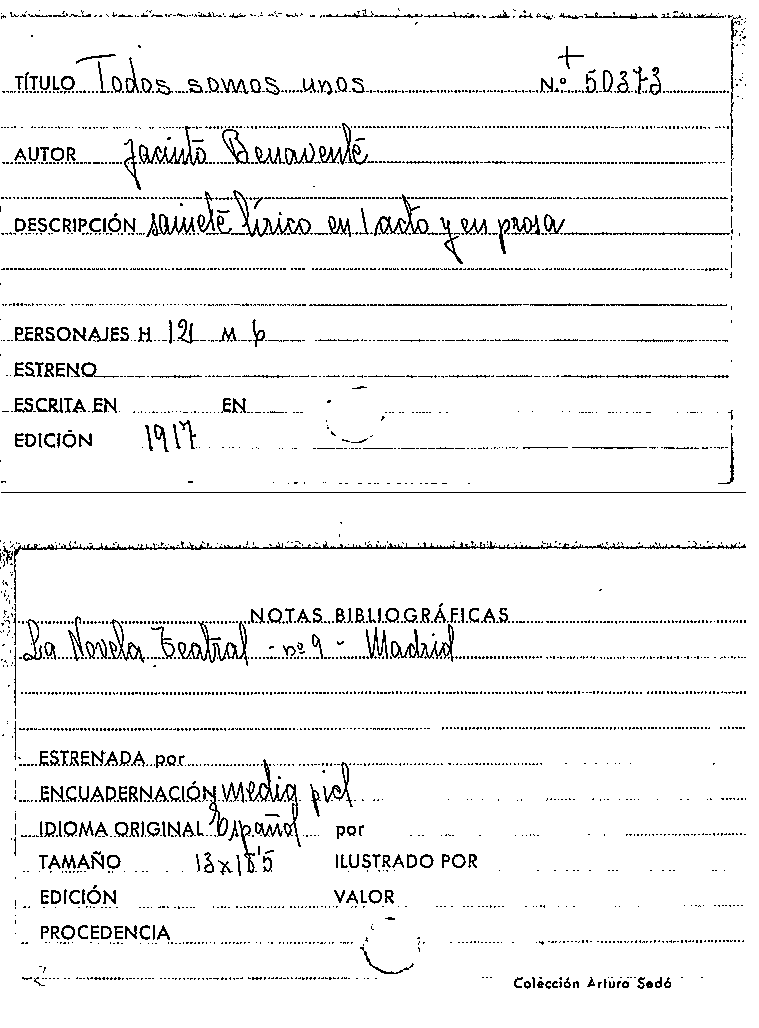 +
TÍTULO Todos somos unos N.º 50373
AUTOR Jacinto Benavente
DESCRIPCIÓN sainete lírico en 1 acto y en prosa
PERSONAJES H 12 M 6
ESTRENO
ESCRITA EN EN
EDICIÓN 1917
NOTAS BIBLIOGRÁFICAS
La Novela Teatral - nº 9 - Madrid
ESTRENADA por
ENCUADERNACIÓN media piel
IDIOMA ORIGINAL Español por
TAMAÑO 13x18'5 ILUSTRADO POR
EDICIÓN VALOR
PROCEDENCIA
Colección Arturo Sedó